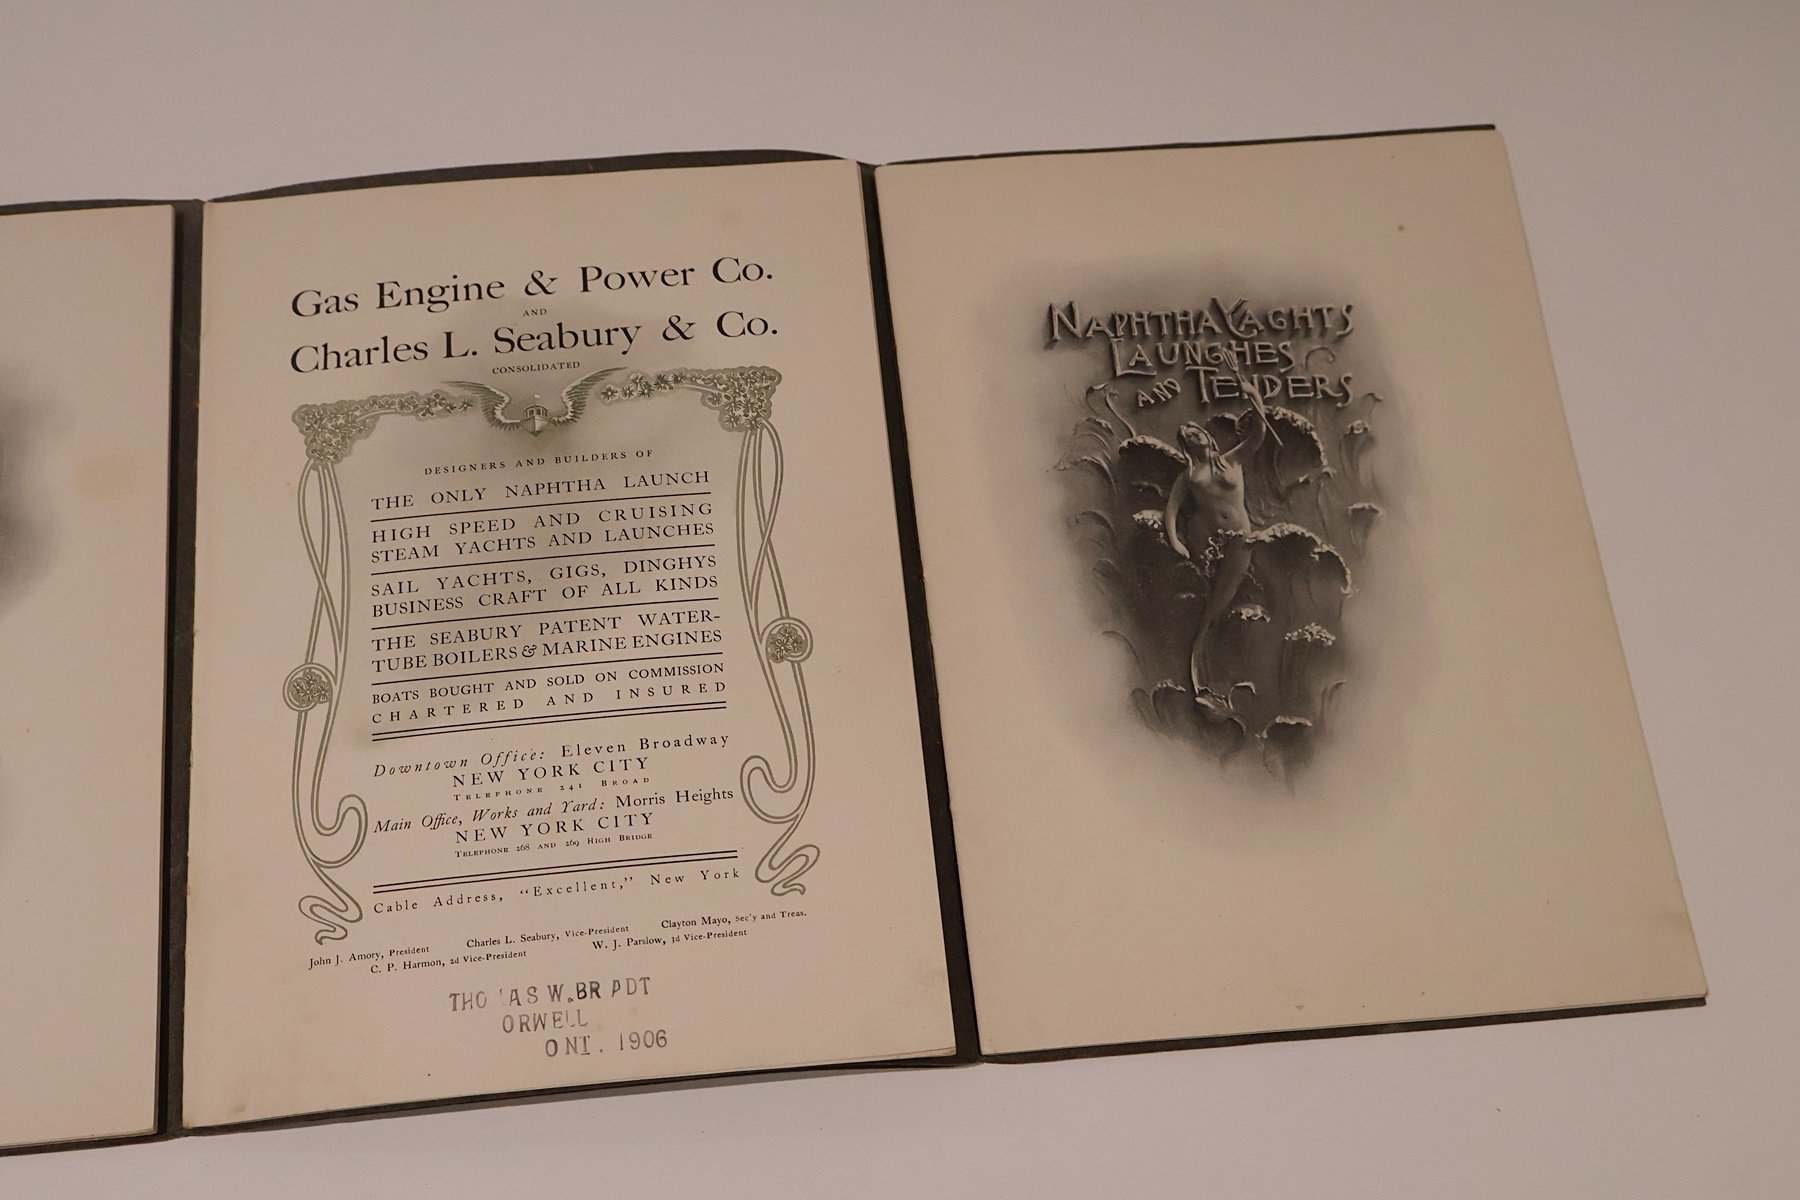 Gas Engine & Power Co.
AND
Charles L. Seabury & Co.
CONSOLIDATED
DESIGNERS AND BUILDERS OF
THE ONLY NAPHTHA LAUNCH
HIGH SPEED AND CRUISING
STEAM YACHTS AND LAUNCHES
SAIL YACHTS, GIGS, DINGHYS
BUSINESS CRAFT OF ALL KINDS
THE SEABURY PATENT WATER-
TUBE BOILERS & MARINE ENGINES
BOATS BOUGHT AND SOLD ON COMMISSION
CHARTERED AND INSURED
Downtown Office: Eleven Broadway
NEW YORK CITY
TELEPHONE 241 BROAD
Main Office, Works and Yard: Morris Heights
NEW YORK CITY
TELEPHONE 268 AND 269 HIGH BRIDGE
Cable Address, "Excellent," New York
John J. Amory, President Charles L. Seabury, Vice-President Clayton Mayo, Sec'y and Treas.
C. P. Harmon, 2d Vice-President W. J. Parslow, 3d Vice-President
W. BRADT
ORWELL
ONT. 1906
NAPHTHA YACHTS
LAUNCHES
AND TENDERS